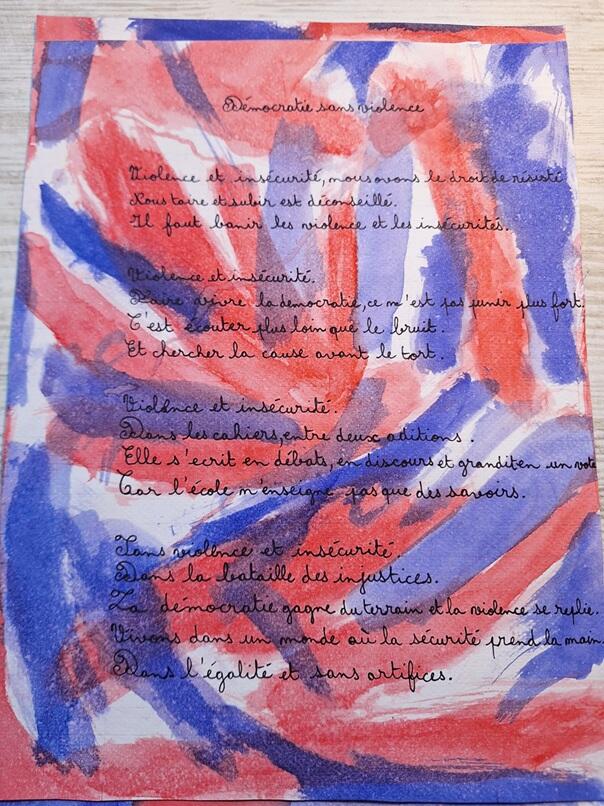 Démocratie sans violence
Violence et insécurité, nous avons le droit de résisté
Nous taire et subir est déconseillé.
Il faut banir les violence et les insécurités.
Violence et insécurité.
Faire vivre la democratie, ce n'est pas punir plus fort.
C'est écouter plus loin que le bruit.
Et chercher la cause avant le tort.
Violence et insécurité.
Dans les cahiers, entre deux aditions.
Elle s'ecrit en débats, en discours et grandit en un vote
Car l'école n'enseigne pas que des savoirs.
Sans violence et insécurité.
Dans la bataille des injustices.
La démocratie gagne du terrain et la violence se replie.
Vivons dans un monde où la sécurité prend la main
Dans l'égalité et sans artifices.